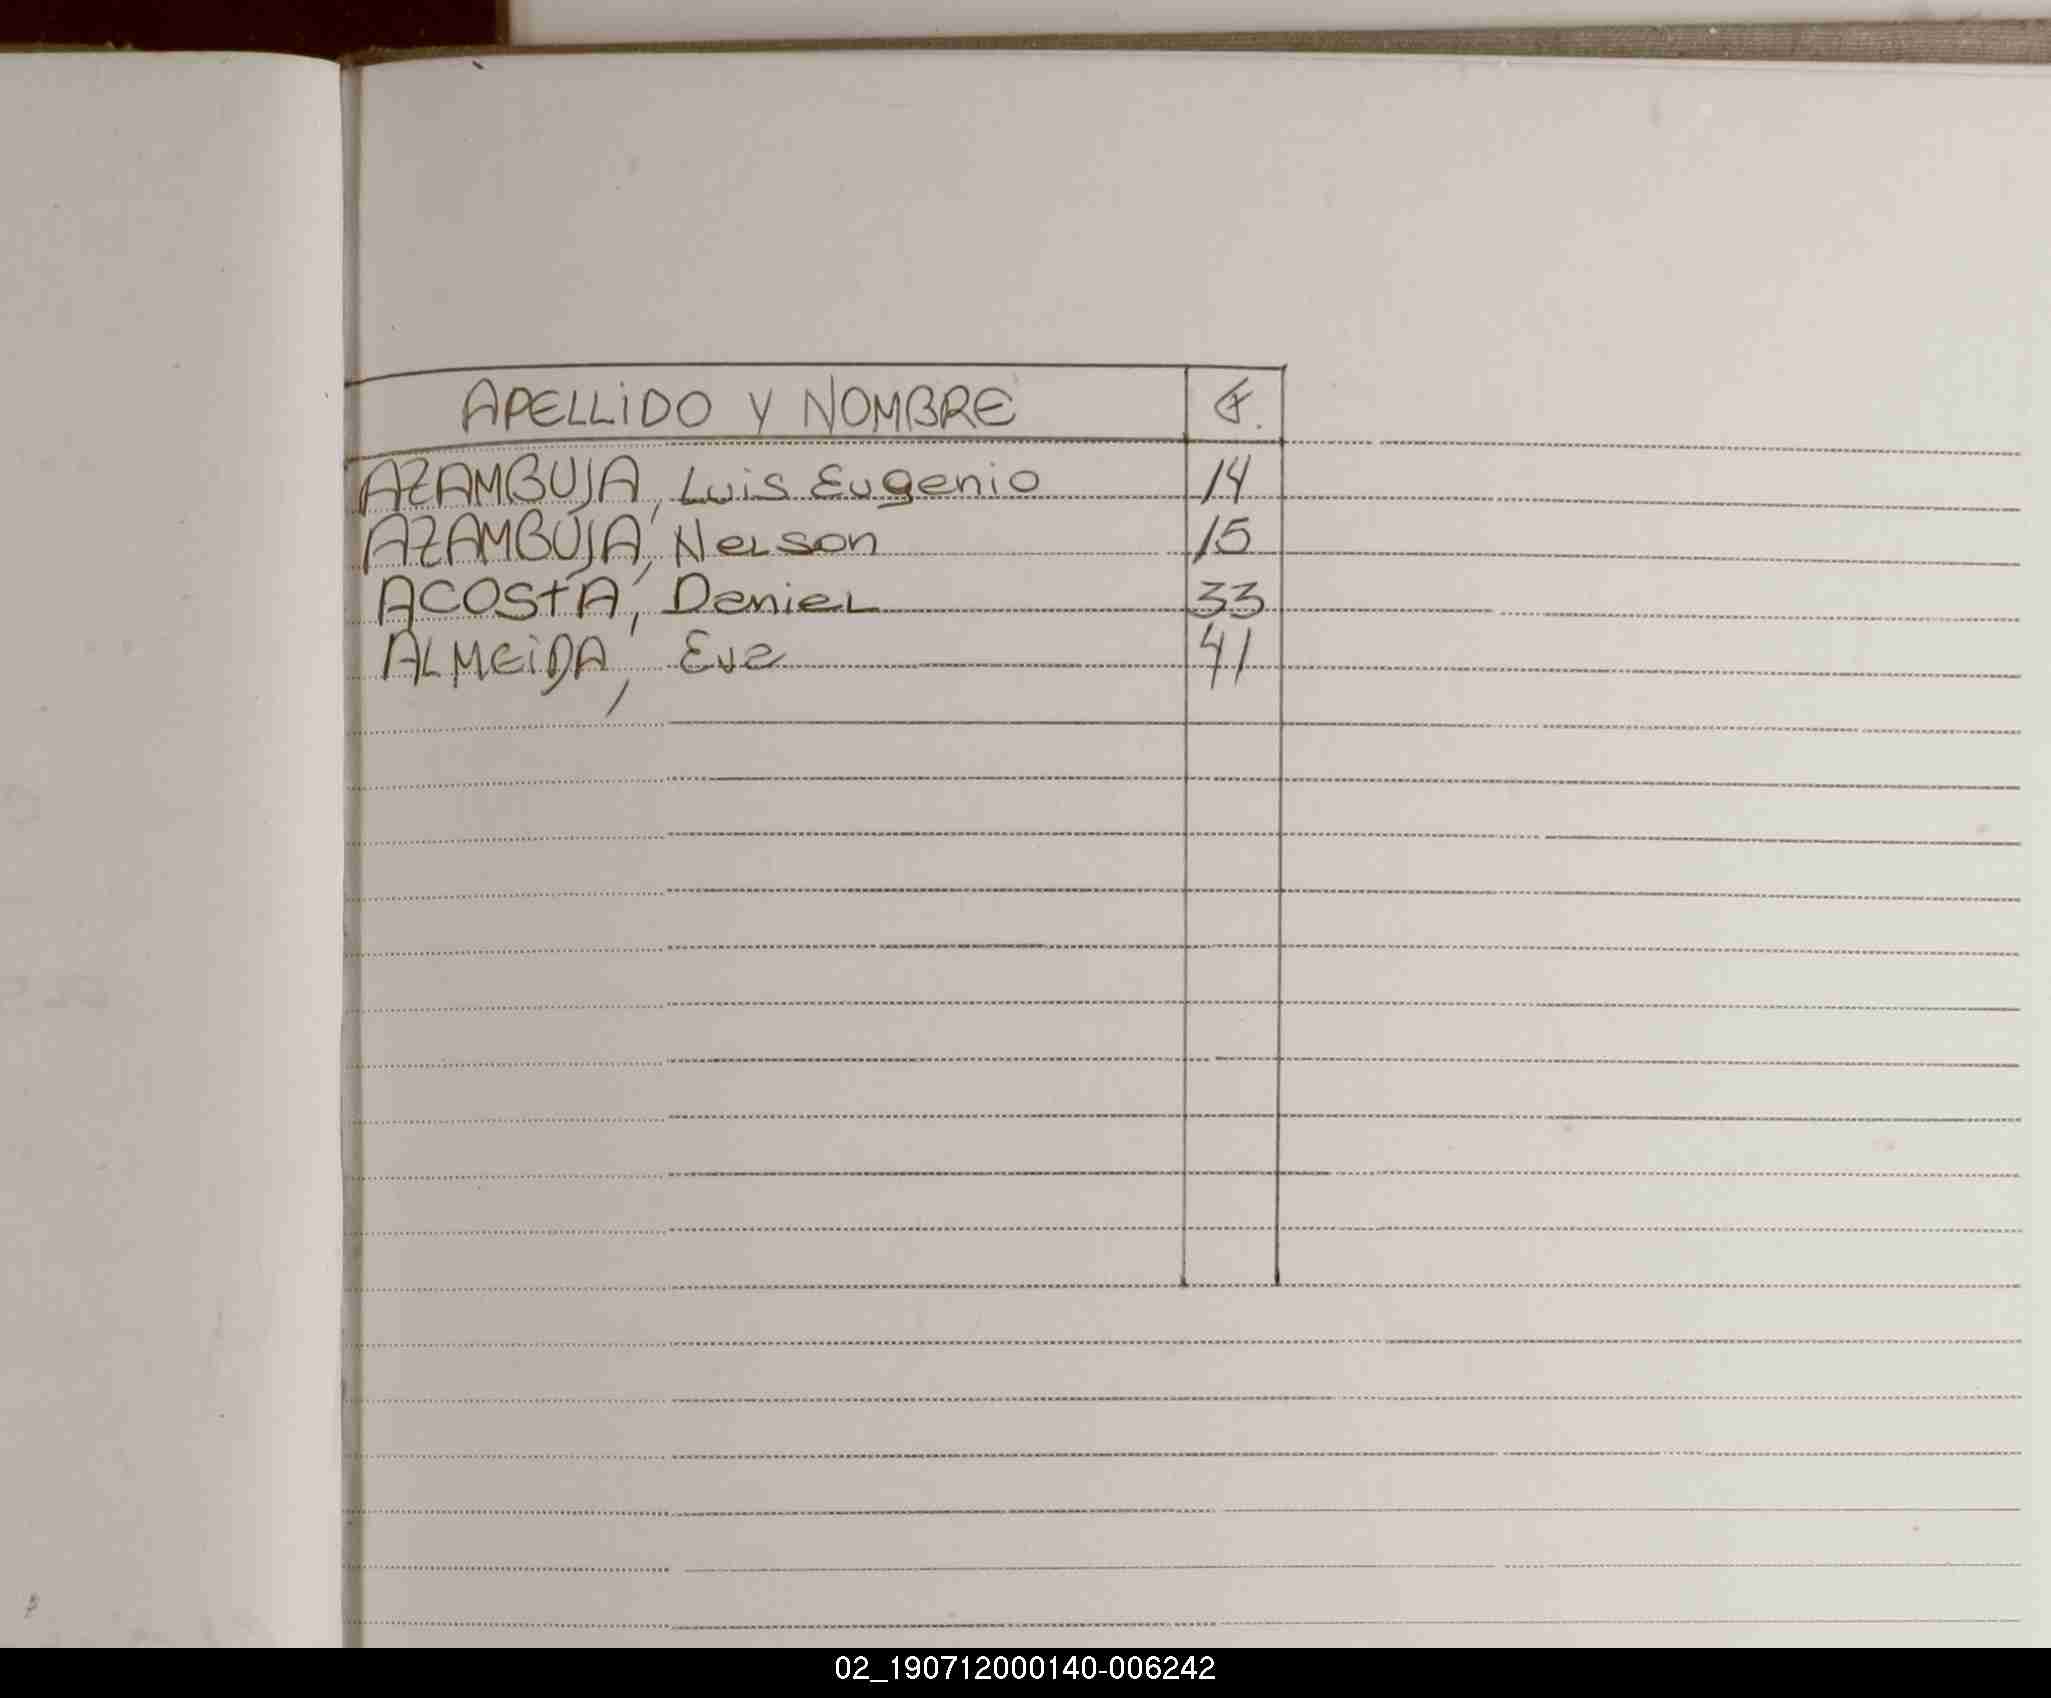 APELLIDO Y NOMBRE F.
AZAMBUJA, Luis Eugenio 14
AZAMBUJA, Nelson 15
ACOSTA, Daniel 33
ALMEIDA, Eva 41
02_190712000140-006242